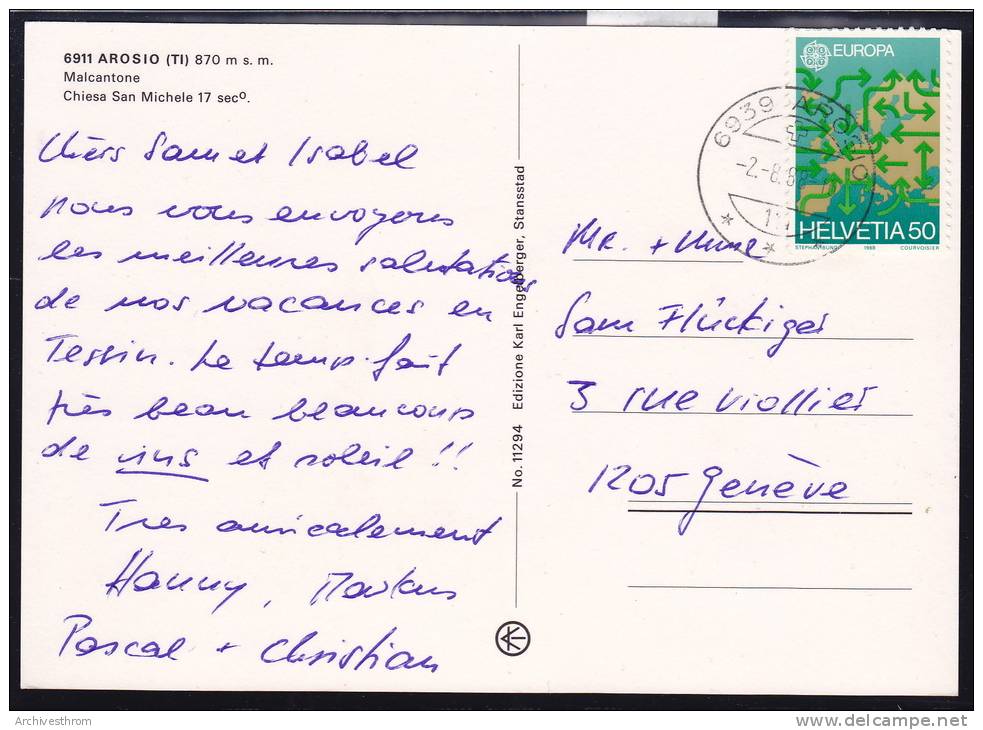 6911 AROSIO (TI) 870 m s. m.
Malcantone
Chiesa San Michele 17 secº.
Chers Sam et Isabel
nous vous envoyons
les meilleures salutations
de nos vacances en
Tessin. Le temps fait
très beau beaucoup
de vins et soleil !!
Tres amicalement
Hanny, Markus
Pascal + Christian
No. 11294 Edizione Karl Engelberger, Stansstad
EUROPA
HELVETIA 50
1988 COURVOISIER
6939 AROSIO
-2.-8.88
Mr. + Mme
Sam Flückiger
3 rue Viollier
1205 Genève
Archivesthrom
www.delcampe.net